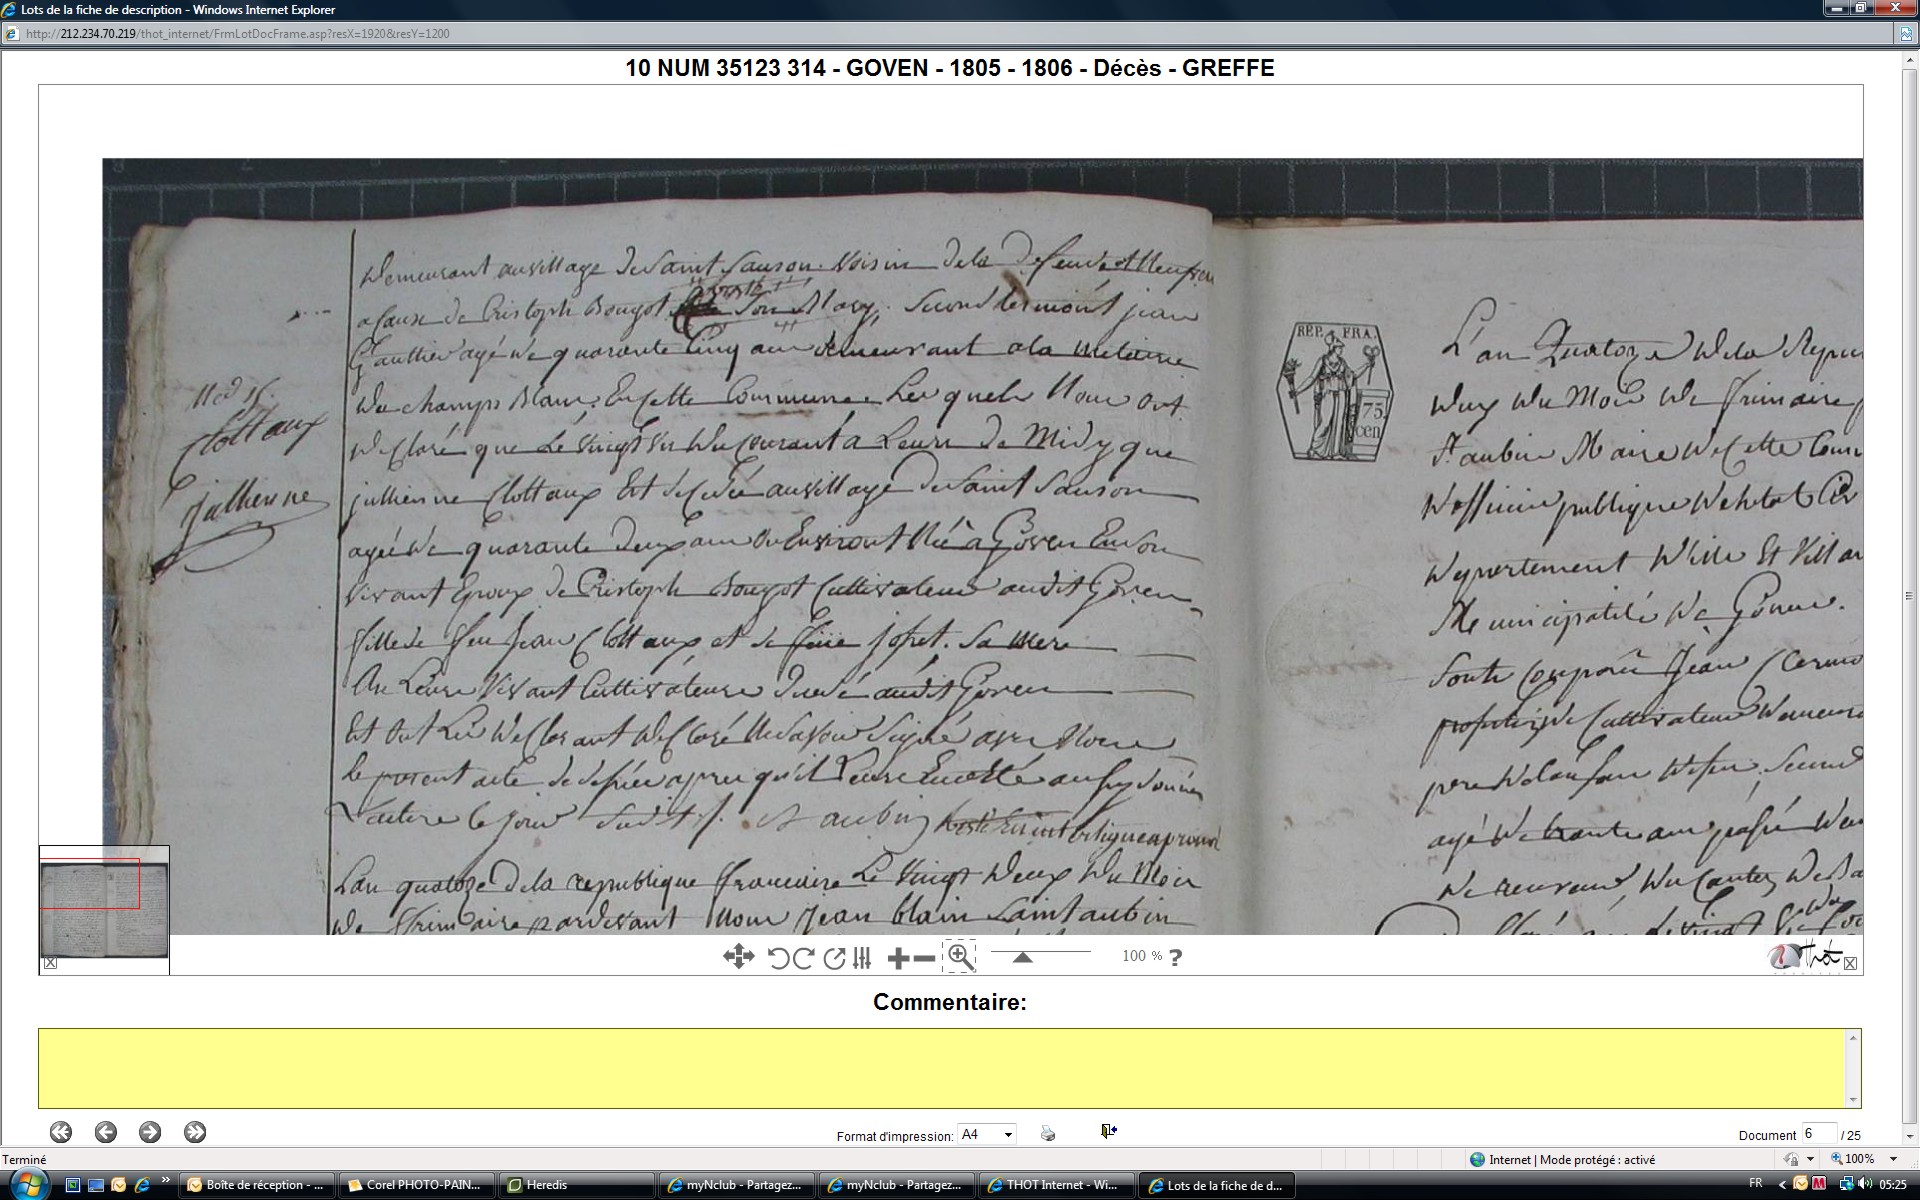 Lots de la fiche de description - Windows Internet Explorer
http://212.234.70.219/thot_internet/FrmLotDocFrame.asp?resX=1920&resY=1200
10 NUM 35123 314 - GOVEN - 1805 - 1806 - Décès - GREFFE
Demeurant au village de Saint Sauson voisin de la
a cause de Cristoph Bougot son Mary. Second temoint jean
Gaultier agé de quarante cinq ans demeurant a la metairie
du champs Blanc En cette Commune Les quels Nous ont
declaré que Le vingt un du courant a Leure de Midy que
jullienne Clottaux Est decedée au village de Saint Sauson
agée de quarante deux ans ou Environt Née a Goven En son
vivant Epoux de Cristoph Bougot Cultivateur audit Goven
fille de feu Jean Clottaux et de joset. sa mere
An Leure Vivant Cultivateure audit Goven
Et ont Les declarant declaré Ne savoir Signé avec Nous
le present acte de apres qu'il Leure En
Lecture le jour Sudit S aubin
Lan quatoze de la republique francaise Le vingt deux du Mois
de frimaire pardevant Nous Jean blain Saint aubin
No 15.
Clottaux
jullienne
REP. FRA.
75.
cen
L'an Quatoze de la Repu
deux du Mois de frimaire
St aubin Maire de Cette Com
d'officier publique de letat Civ
departement dille Et Villai
Municipalité de Goven.
Sont comparû Jean
Cultivateur Demeura
pere de lenfan Second
agé de trante ans passé Dem
100 %
?
Thot
Commentaire:
Format d'impression: A4
Document 6 / 25
Terminé
Internet | Mode protégé : activé
100%
Boîte de réception - ...
Corel PHOTO-PAIN...
Heredis
myNclub - Partagez...
myNclub - Partagez...
THOT Internet - Wi...
Lots de la fiche de d...
FR
05:25